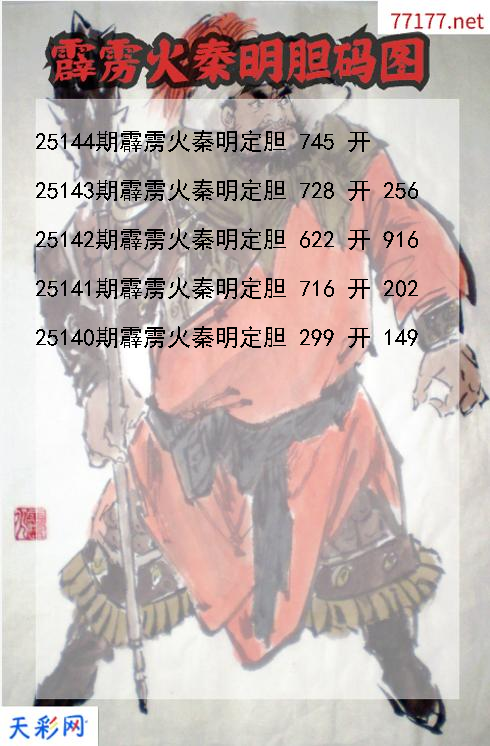 77177.net
霹雳火秦明胆码图
25144期霹雳火秦明定胆 745 开
25143期霹雳火秦明定胆 728 开 256
25142期霹雳火秦明定胆 622 开 916
25141期霹雳火秦明定胆 716 开 202
25140期霹雳火秦明定胆 299 开 149
天彩网